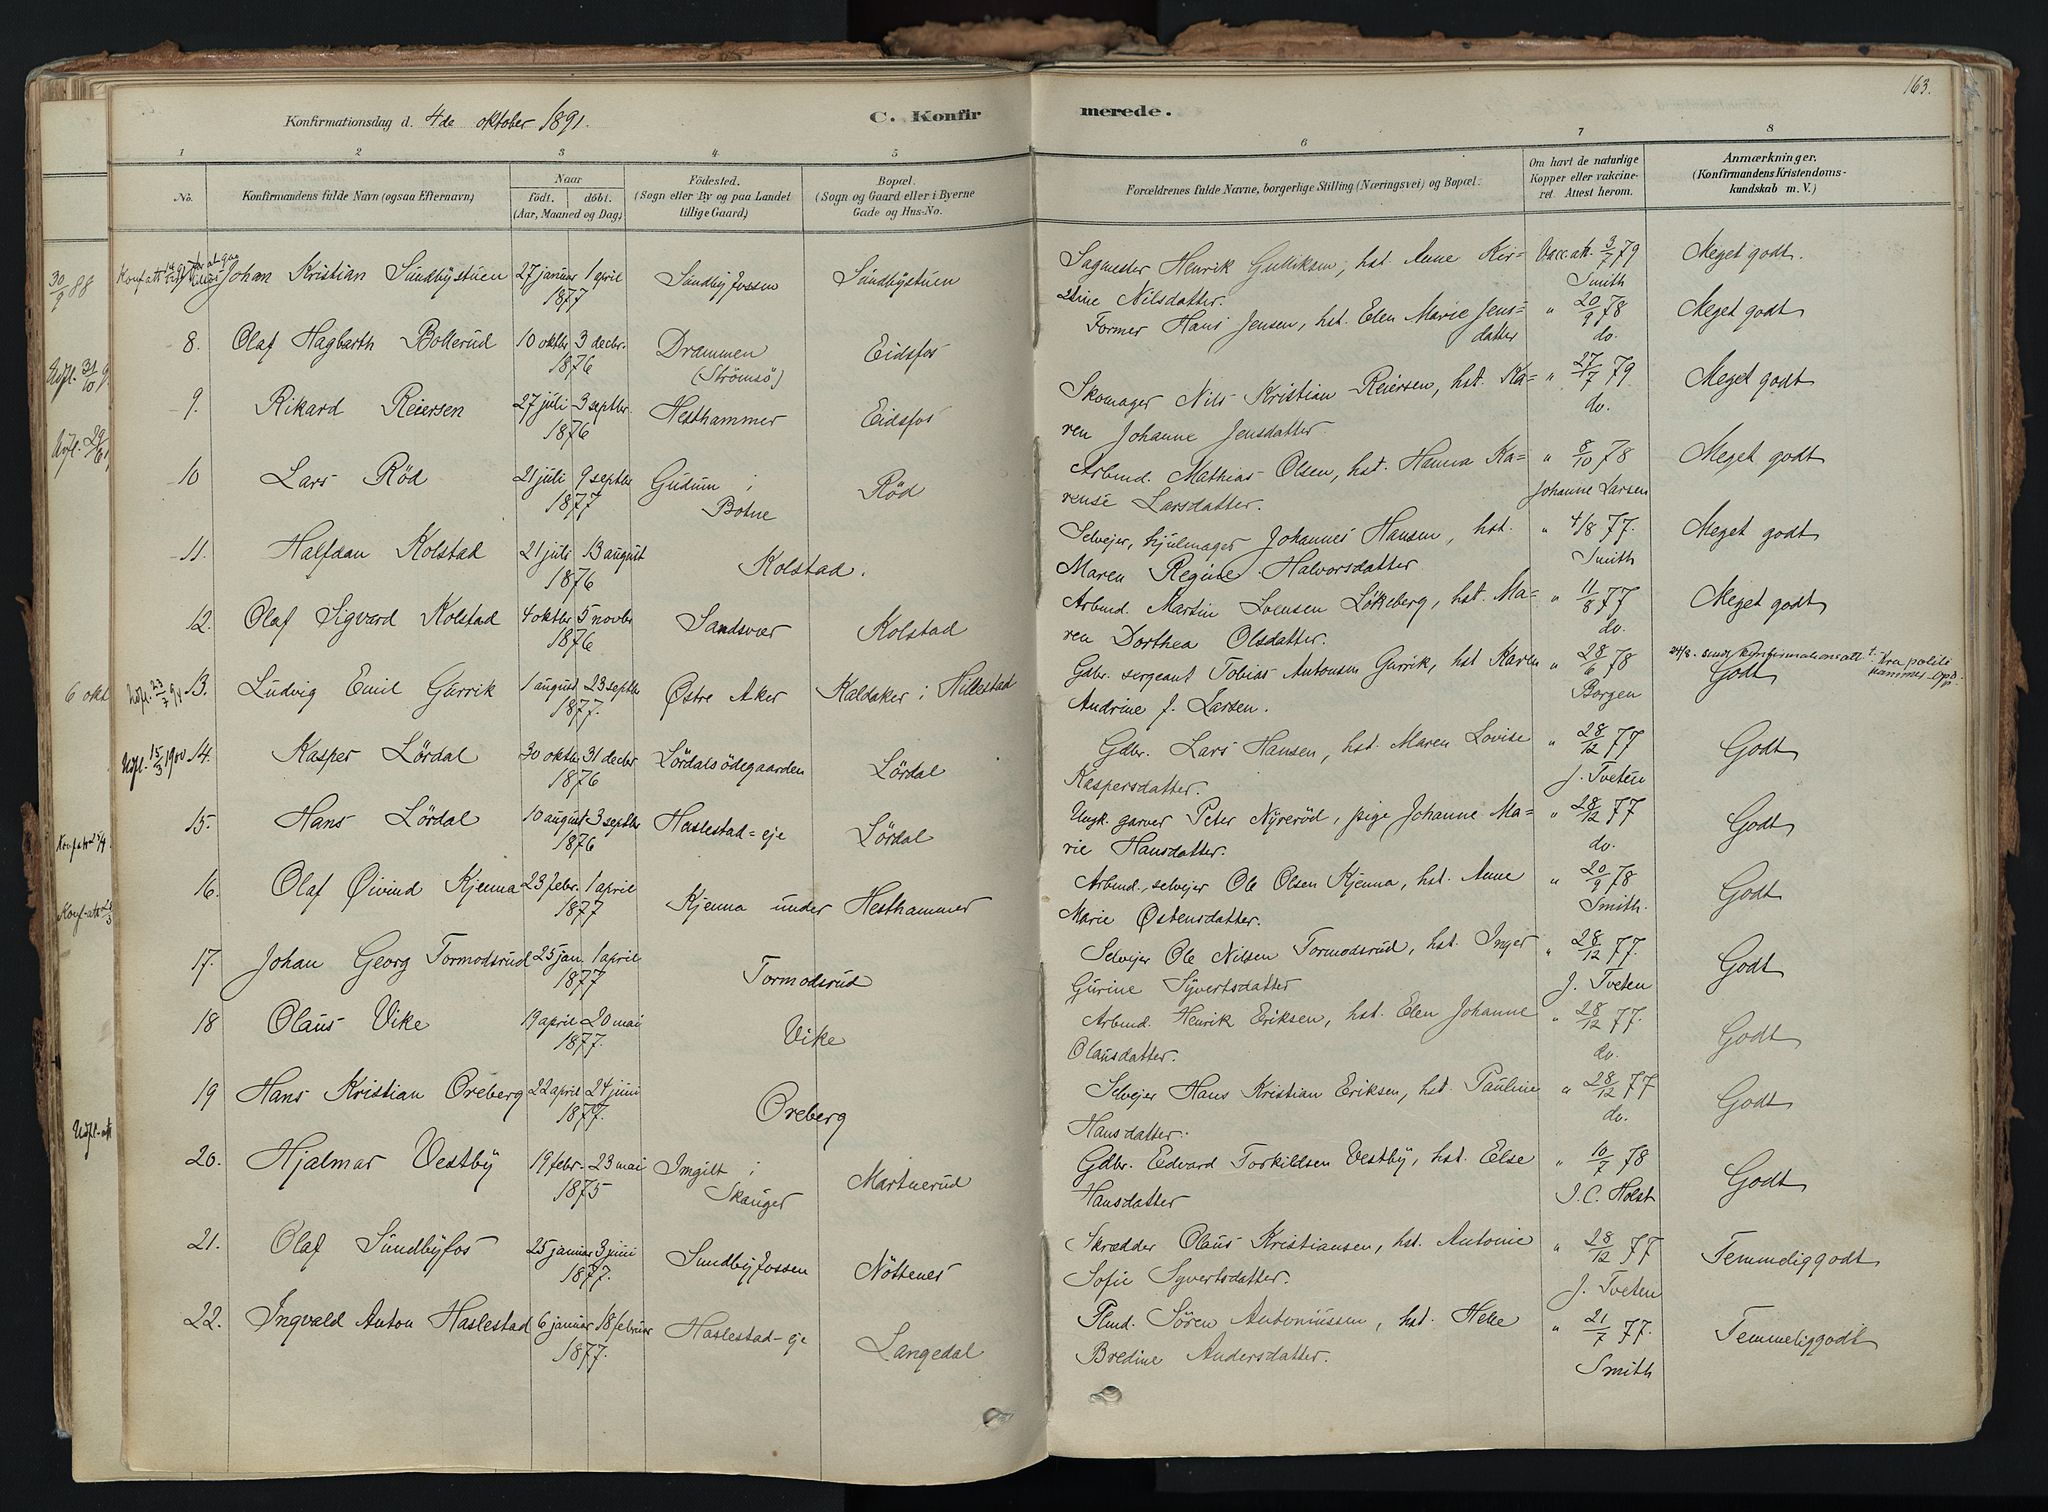 163.
Konfirmationsdag d. 4de oktober 1891.
C. Konfirmerede.
1 2 3 4. 5 6 7 8
No. Konfirmandens fulde Navn (ogsaa Efternavn)
Naar
födt. döbt.
(Aar, Maaned og Dag)
Födested.
(Sogn eller By og paa Landet
tillige Gaard)
Bopæl.
(Sogn og Gaard eller i Byerne
Gade og Hus-No.
Forældrenes fulde Navne, borgerlige Stilling (Næringsvei) og Bopæl.
Om havt de naturlige
Kopper eller vakcine-
ret. Attest herom.
Anmærkninger.
(Konfirmandens Kristendoms-
kundskab m. V.)
30/9 88
Johan Kristian Sundbystuen 27 januar 1 april 1877 Sundbyfossen Sundbystuen
Sagmester Henrik Gulliksen, hst. Anne Kir-
stine Nilsdatter.
Vacc. att. 3/7 79
Smith
Meget godt.
8. Olaf Hagbarth Bollerud 10 oktbr 3 decbr. 1876 Drammen (Strömsö) Eidsfos
Former Hans Jensen, hst. Elen Marie Jens-
datter
" 20/9 78
do.
Meget godt
9. Rikard Reiersen 27 juli 3 septbr 1876 Hesthammer Eidsfos
Skomager Nils Kristian Reiersen, hst. Ka-
ren Johanne Jensdatter.
" 27/7 79
do.
Meget godt
10 Lars Röd 21 juli 9 septbr 1877 Gudum i Botne Röd
Arbmd. Mathias Olsen, hst. Hanna Ka-
rense Larsdatter.
" 8/10 78
Johanne Larsen
Meget godt
11. Halfdan Kolstad 21 juli 13 august 1876 Kolstad.
Selvejer, hjulmager Johannes Hansen, hst.
Maren Regine Halvorsdatter
" 4/8 77.
Smith
Meget godt
12. Olaf Sigvard Kolstad 4 oktbr 5 novbr 1876 Sandsvær Kolstad
Arbmd. Martin Svensen Lökeberg, hst. Ma-
ren Dorthea Olsdatter.
" 11/8 77
do.
Meget godt
6 okt
Udfl. 23/7 94
13. Ludvig Emil Gurrik 1 august 23 septbr 1877. Østre Aker Kaldaker i Hillestad
Gdbr. sergeant Tobias Antonsen Gurrik, hst Karen
Andrine J. Larsen.
" 28/6 78
Borgen
Godt
Udfl. 15/3 1900
14. Kasper Lördal 30 oktbr 31 decbr 1876 Lördalsödegaarden Lördal
Gdbr. Lars Hansen, hst. Maren Lovise
Kaspersdatter.
" 28/12 77
J. Tveten
Godt
15. Hans Lördal 10 august 3 septbr 1876 Haslestad-eje Lördal
Ungk. garver Peter Nyreröd, pige Johanne Ma-
rie Hansdatter.
" 28/12 77
do.
Godt
16. Olaf Øivind Kjenna 23 febr. 1 april 1877 Kjenna under Hesthammer
Arbmd., selvejer Ole Olsen Kjenna, hst. Anne
Marie Østensdatter.
" 20/9 78
Smith.
Godt
17. Johan Georg Tormodsrud 25 jan. 1 april 1877 Tormodsrud
Selvejer Ole Nilsen Tormodsrud, hst. Inger
Gurine Syvertsdatter
" 28/12 77.
J. Tveten
Godt
18 Olaus Vike 19 april 20 mai 1877. Vike
Arbmd. Henrik Eriksen, hst. Elen Johanne
Olausdatter.
" 28/12 77.
do.
Godt
19 Hans Kristian Oreberg 22 april 24 juni 1877. Oreberg
Selvejer Hans Kristian Eriksen, hst. Pauline
Hansdatter.
" 28/12 77
do.
Godt
20. Hjalmar Vestby 19 febr. 23 mai 1875 i Skauger Martnerud
Gdbr. Edvard Torkildsen Vestby, hst. Else
Hansdatter
" 10/7 78
J. C. Holst
Godt
21. Olaf Sundbyfos 25 januar 3 juni 1877. Sundbyfossen Nöttenes
Skrædder Olaus Kristiansen, hst. Antonie
Sofie Syvertsdatter.
" 28/12 77
J. Tveten
Temmelig godt
22. Ingvald Anton Haslestad 6 januar 18 februar 1877. Haslestad-eje Langedal
Plmd. Sören Antoniussen, hst. Helle
Bredine Andersdatter.
" 21/7 77.
Smith
Temmelig godt